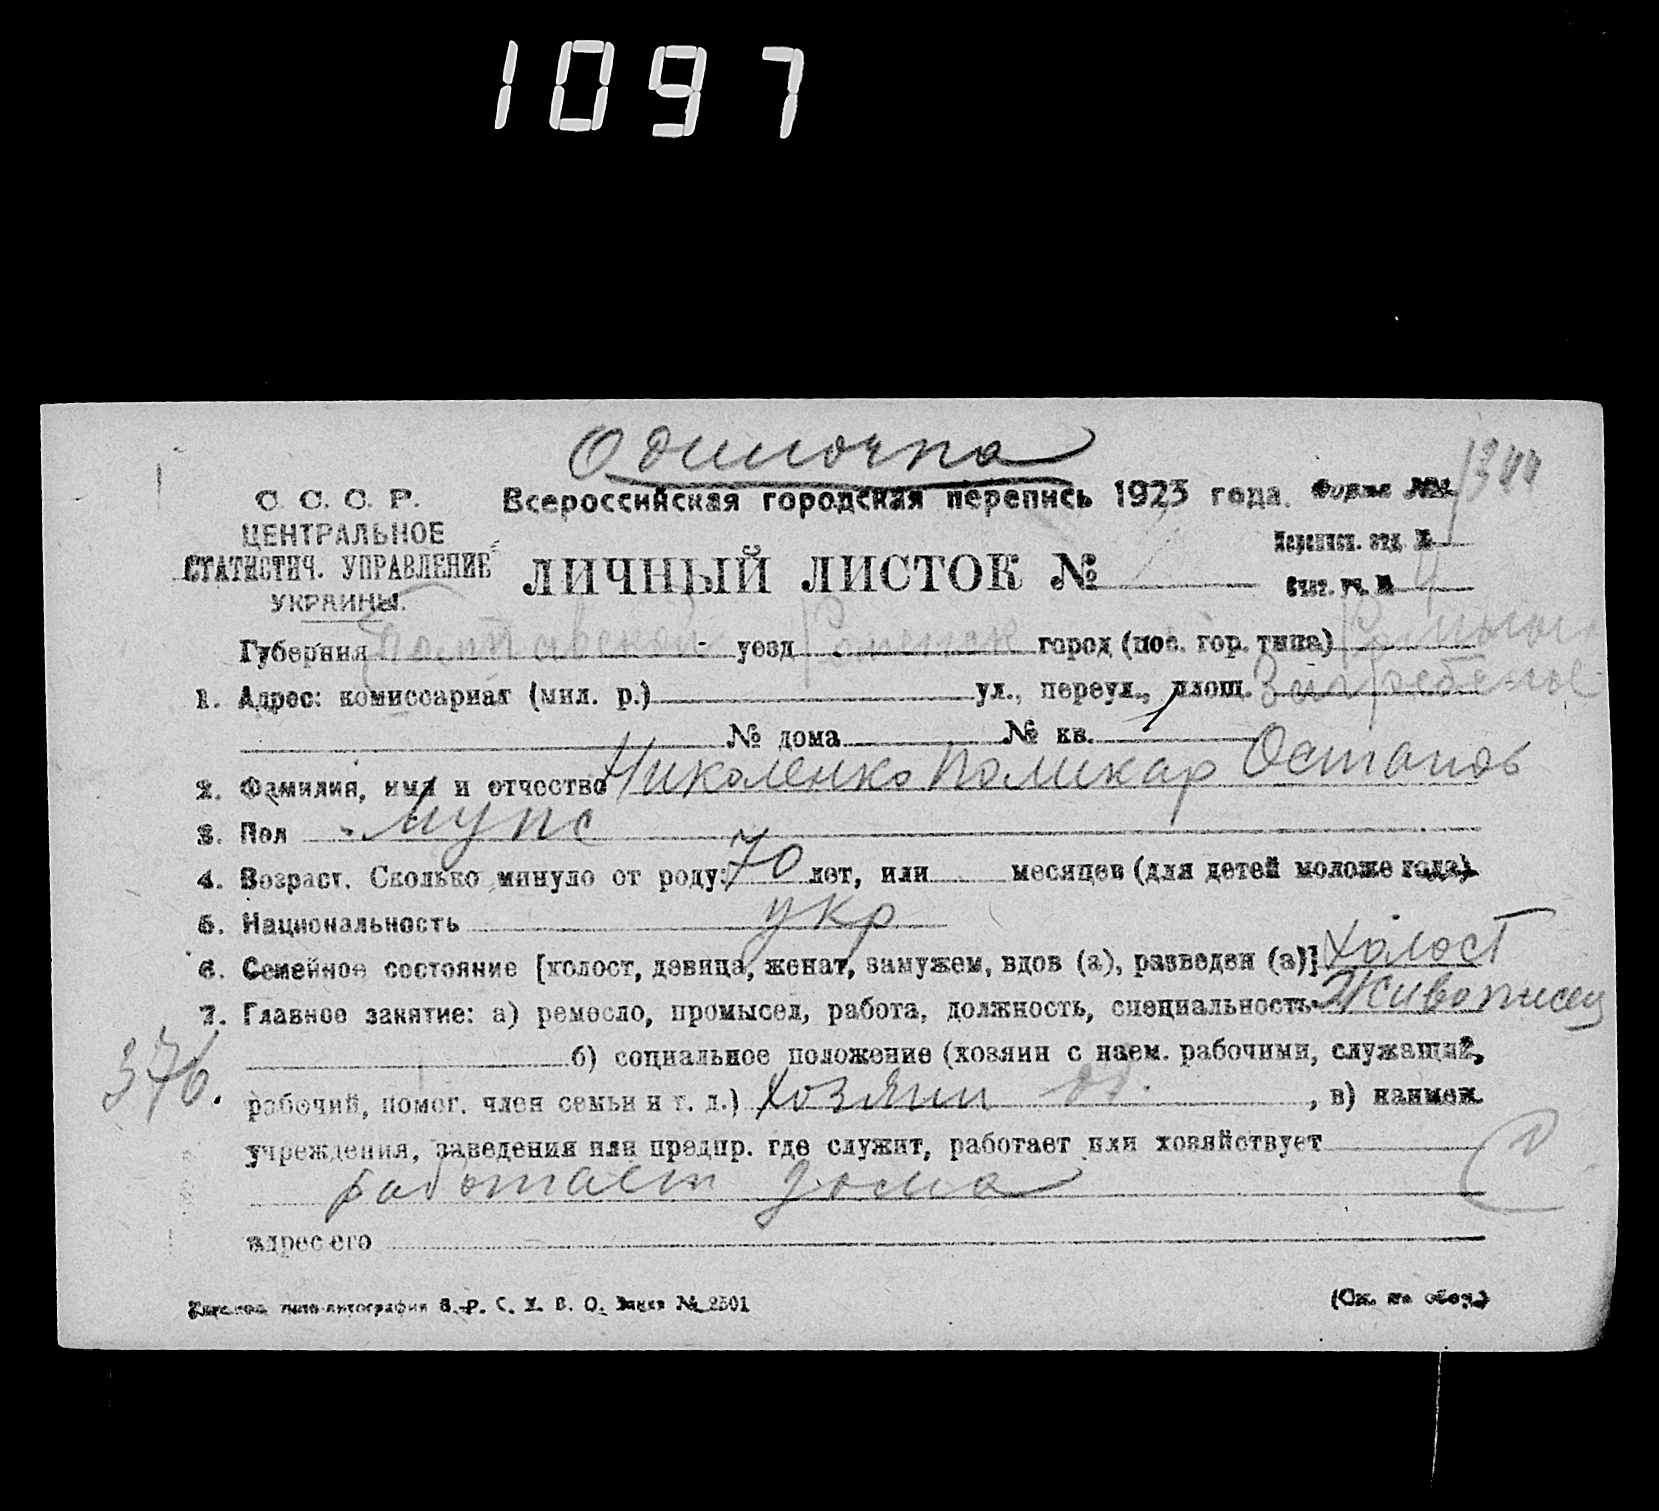 1097
Одиночка
1344
С. С. С. Р.
ЦЕНТРАЛЬНОЕ
СТАТИСТИЧ. УПРАВЛЕНИЕ
УКРАИНЫ.
Всероссийская городская перепись 1923 года. Форма №
ЛИЧНЫЙ ЛИСТОК №
Переписн. отд. №
Счет. уч. № 4
Губерния Полтавской уезд Роменск город (пос. гор. типа)
1. Адрес: комиссариат (мил. р.) ул., переул., площ.
№ дома № кв.
2. Фамилия, имя и отчество Николенко Поликар Остапов
3. Пол Мужс
4. Возраст. Сколько минуло от роду: 70 лет, или месяцев (для детей моложе года).
5. Национальность укр
6. Семейное состояние [холост, девица, женат, замужем, вдов (а), разведен (а)] холост
7. Главное занятие: а) ремесло, промысел, работа, должность, специальность Живописец
376.
б) социальное положение (хозяин с наем. рабочими, служащий,
рабочий, помог. член семьи и т. д.) хозяин од. , в) наимен.
учреждения, заведения или предпр. где служит, работает или хозяйствует
работает дома
адрес его
типо-литография В. Р. С. У. В. О. Заказ № 2501
(См. на обор.)